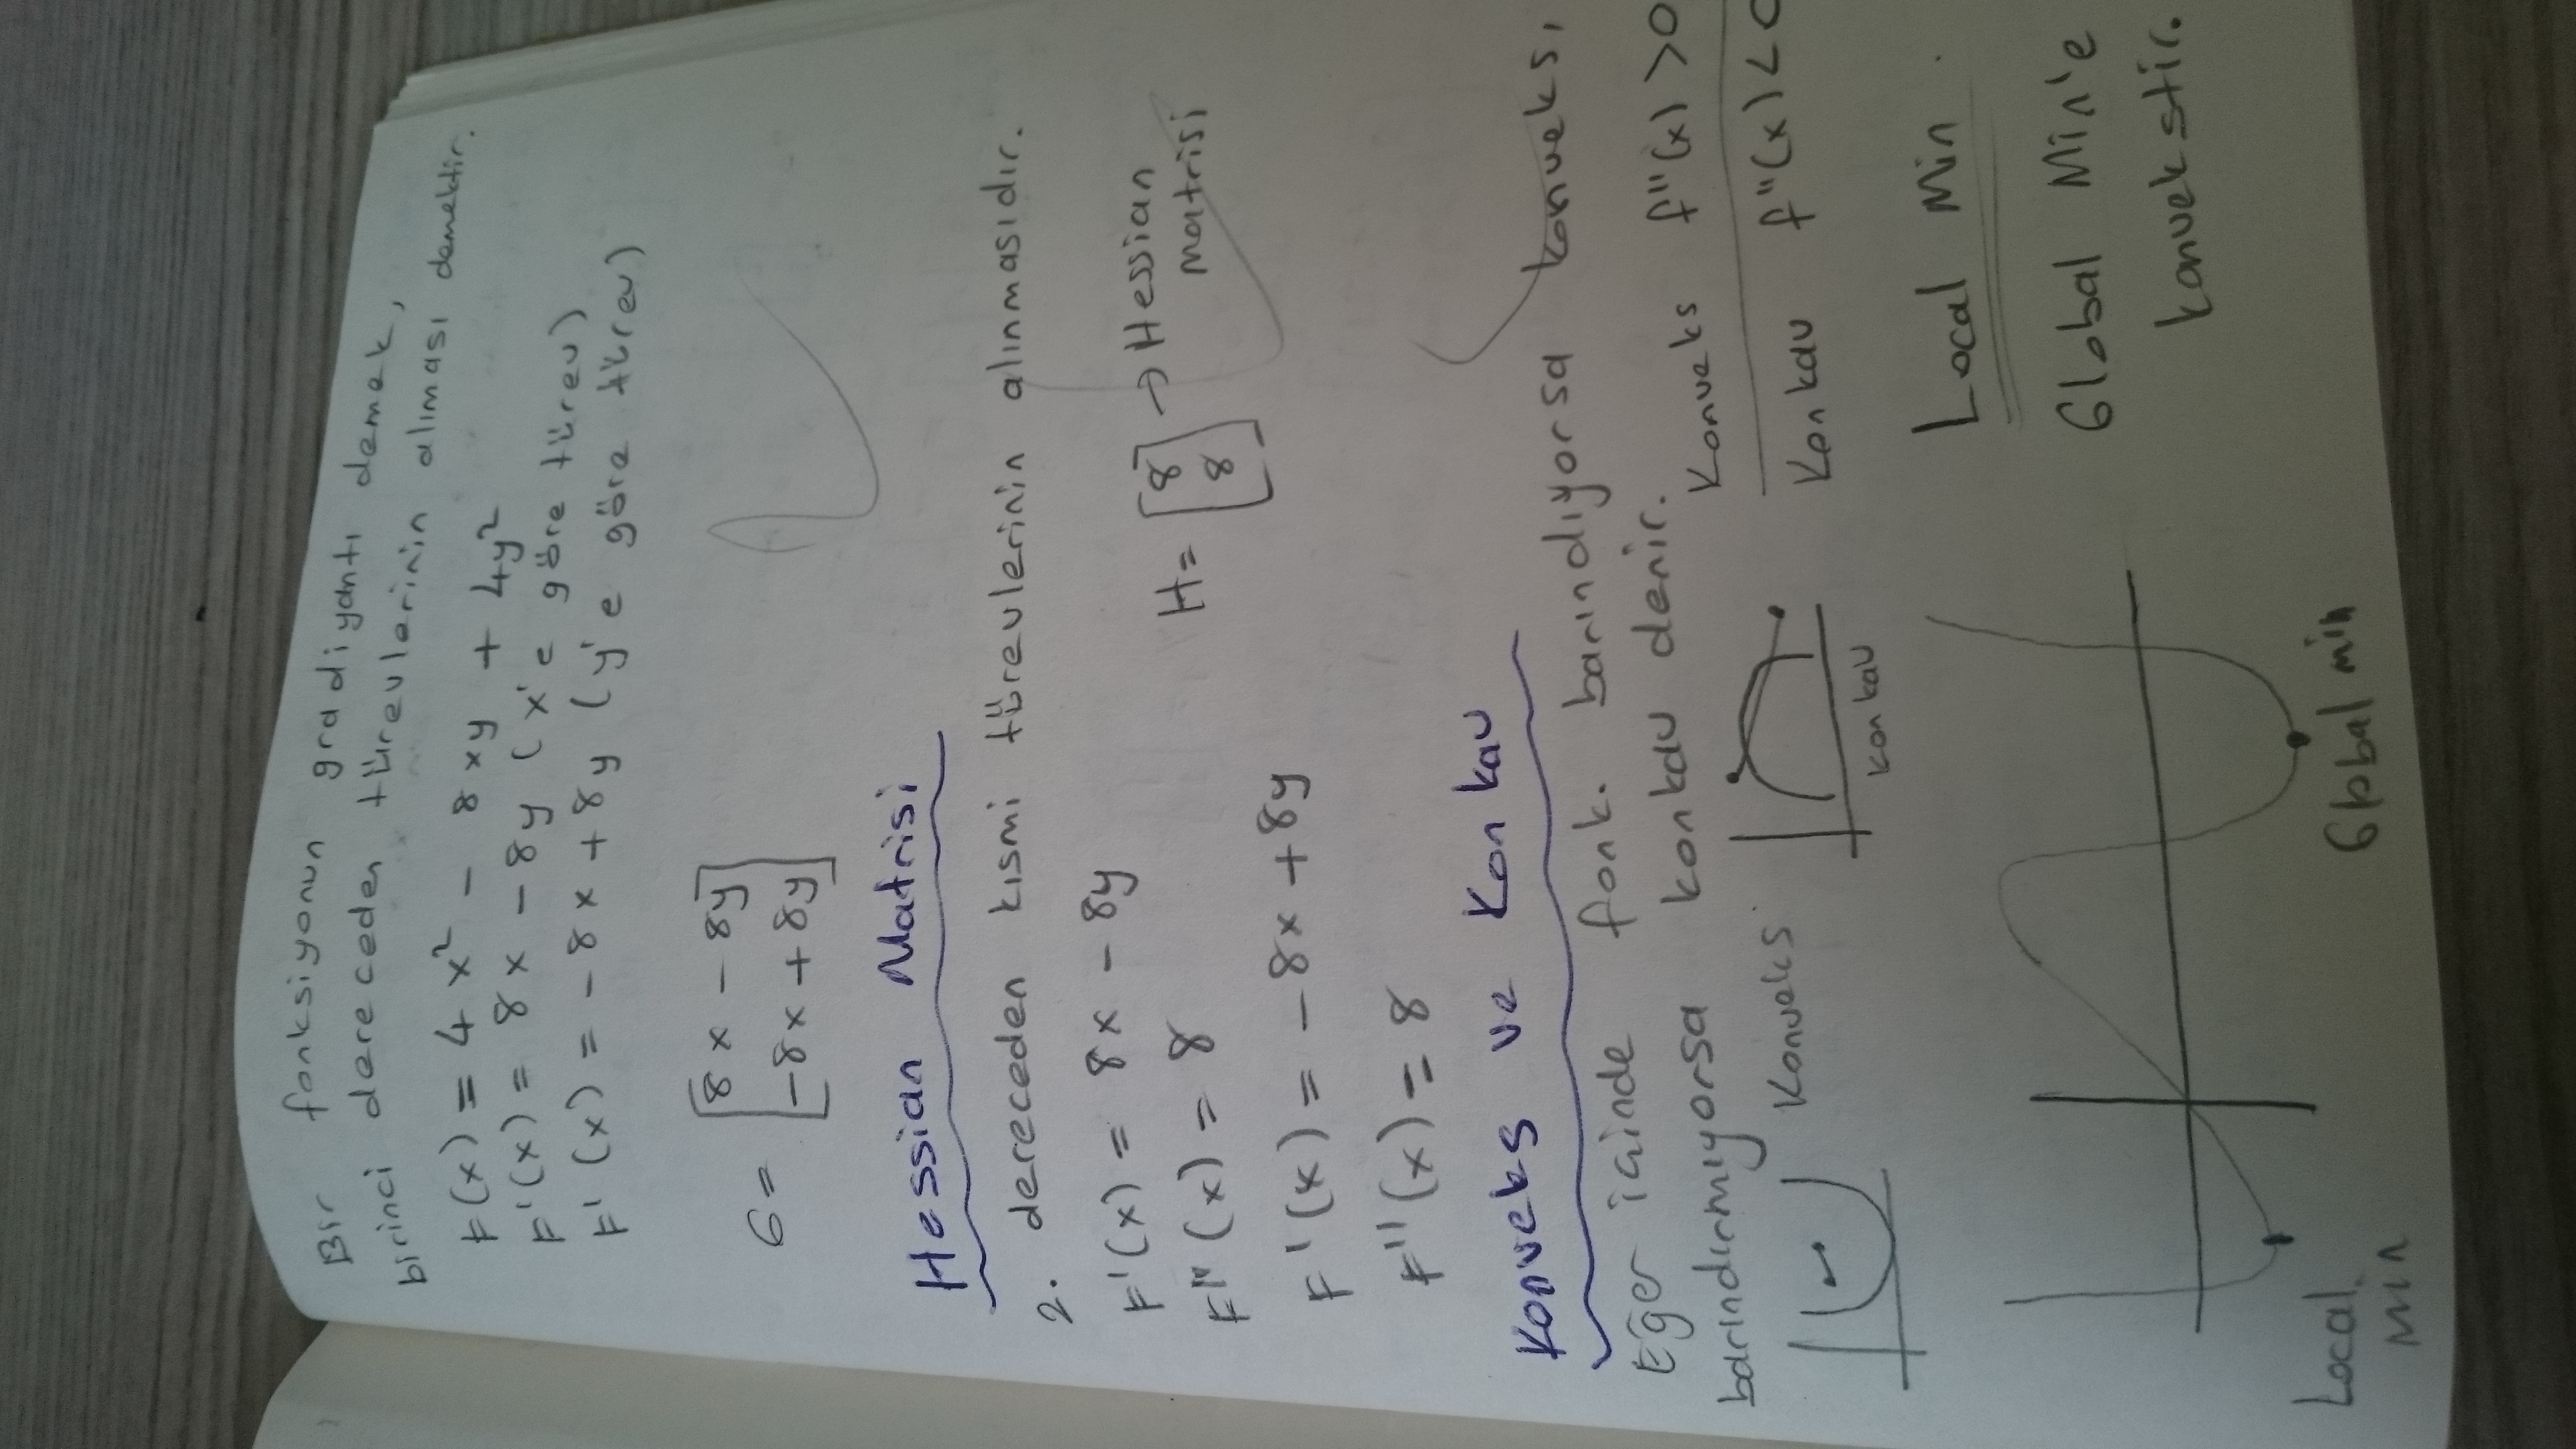 Bir fonksiyonun gradiyantı demek,
birinci dereceden türevlerinin alıması demektir.
F(x) = 4x² - 8xy + 4y²
F'(x) = 8x - 8y (x'e göre türev)
F'(x) = -8x + 8y (y'e göre türev)
G = [8x - 8y
-8x + 8y]
Hessian Matrisi
2. dereceden kısmi türevlerinin alınmasıdır.
F'(x) = 8x - 8y
F''(x) = 8
H = [8
8] → Hessian
matrisi
F'(x) = -8x + 8y
F''(x) = 8
Konveks ve Konkav
Eğer içinde fonk. barındıyorsa konveks,
barındırmıyorsa konkav denir.
Konveks f''(x) > 0
Konkav f''(x) < 0
Konveks
Konkav
Local Min
Global Min'e
konvekstir.
Local
min
Global min